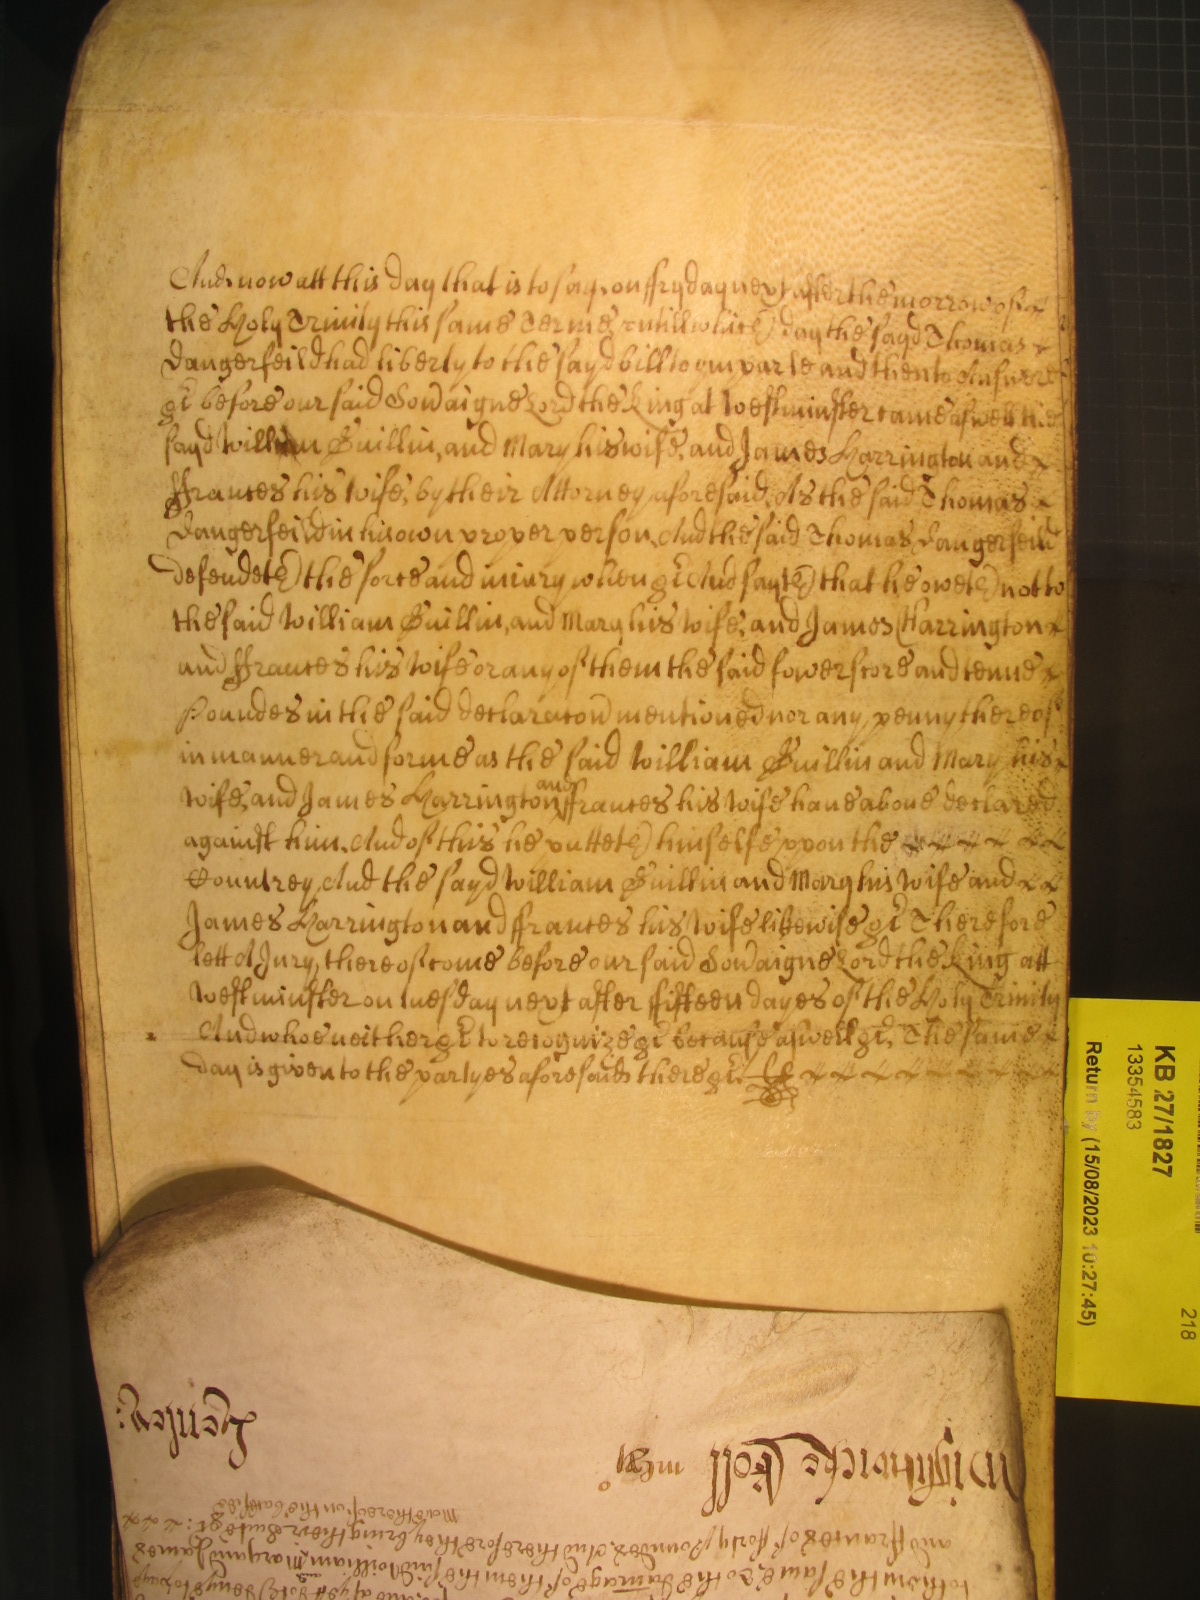 And now att this day that is to say, on ffryday next after the morrow of
the Holy Trinity this same Terme, untill which day the sayd Thomas
Dangerfeild had liberty to the sayd bill to imparle and then to Answere
&c before our said Sovaigne Lord the King at Westminster came aswell the
sayd William Guillin, and Mary his wife, and James Harrington and
ffrances his Wife, by their Attorney aforesaid, As the said Thomas
Dangerfeild in his own proper person, And the said Thomas Dangerfeild
defendeth the force and iniury when &c And sayth that he oweth not to
the said William Guillin, and Mary his Wife, and James Harrington
and ffrances his Wife or any of them the said fower score and tenne
Poundes in the said declaracon mentioned nor any penny thereof
in manner and forme as the said William Guillin and Mary his
Wife, and James Harrington and ffrances his Wife have above declared
against him. And of this he putteth himselfe vpon the
Countrey, And the sayd William Guillin and Mary his Wife and
James Harrington and ffrances his Wife likewise &c Therefore
lett A Jury, thereof come before our said Sovaigne Lord the King att
Westminster on tuesday next after fifteen dayes of the Holy Trinity
And whoe neither &c to recognize &c because aswell &c, The same
day is given to the partyes aforesaid there &c
KB 27/1827
13354583
Return by (15/08/2023 10:27:45)
218
Wightwicke Roll
made thereof on the
and ffrances of fforty Poundes, And therefore they bring their Suite &c
to them the same, to the damage of them the said William and Mary and James